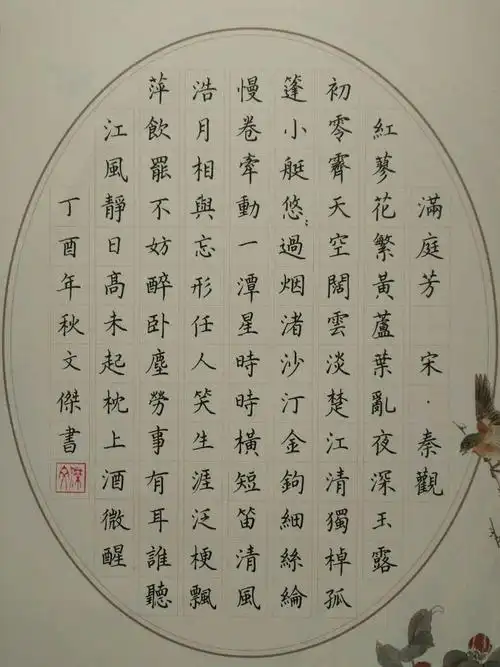 滿庭芳 宋·秦觀
紅蓼花繁黃蘆葉亂夜深玉露
初零霽天空闊雲淡楚江清獨棹孤
篷小艇悠:過烟渚沙汀金鉤細絲綸
慢卷牽動一潭星時時橫短笛清風
浩月相與忘形任人笑生涯泛梗飄
萍飲罷不妨醉卧塵勞事有耳誰聽
江風靜日高未起枕上酒微醒
丁酉年秋文傑書